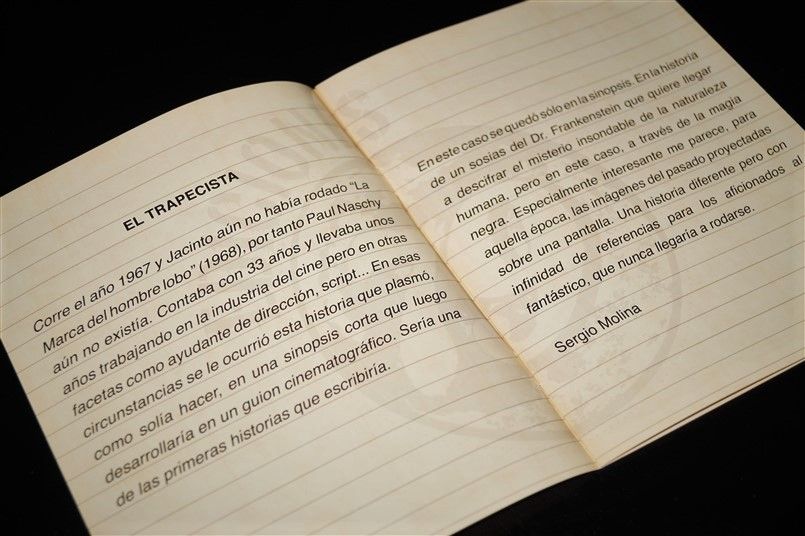 EL TRAPECISTA
Corre el año 1967 y Jacinto aún no había rodado “La
Marca del hombre lobo” (1968), por tanto Paul Naschy
aún no existía. Contaba con 33 años y llevaba unos
años trabajando en la industria del cine pero en otras
facetas como ayudante de dirección, script... En esas
circunstancias se le ocurrió esta historia que plasmó,
como solía hacer, en una sinopsis corta que luego
desarrollaría en un guion cinematográfico. Sería una
de las primeras historias que escribiría.
En este caso se quedó sólo en la sinopsis. En la historia
de un sosias del Dr. Frankenstein que quiere llegar
a descifrar el misterio insondable de la naturaleza
humana, pero en este caso, a través de la magia
negra. Especialmente interesante me parece, para
aquella época, las imágenes del pasado proyectadas
sobre una pantalla. Una historia diferente pero con
infinidad de referencias para los aficionados al
fantástico, que nunca llegaría a rodarse.
Sergio Molina